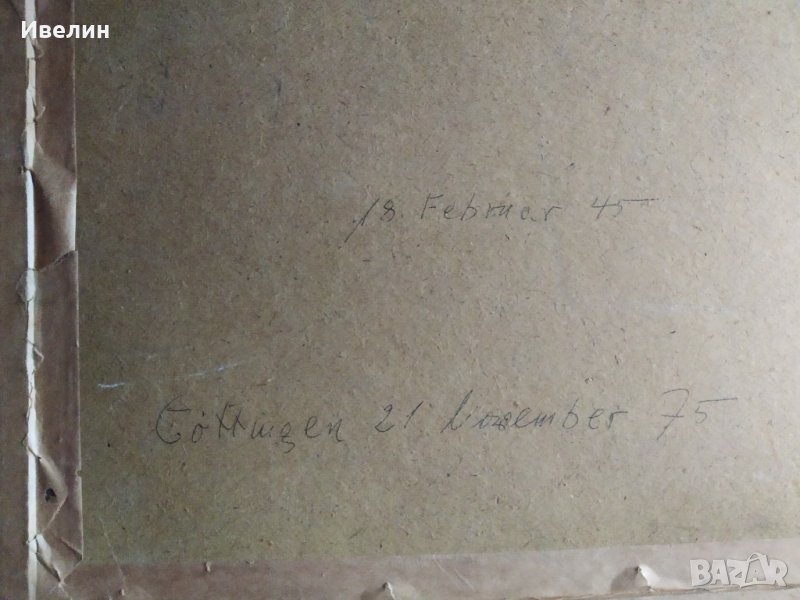 Ивелин
18. Februar 45
Göttingen 21 November 75
BAZAR